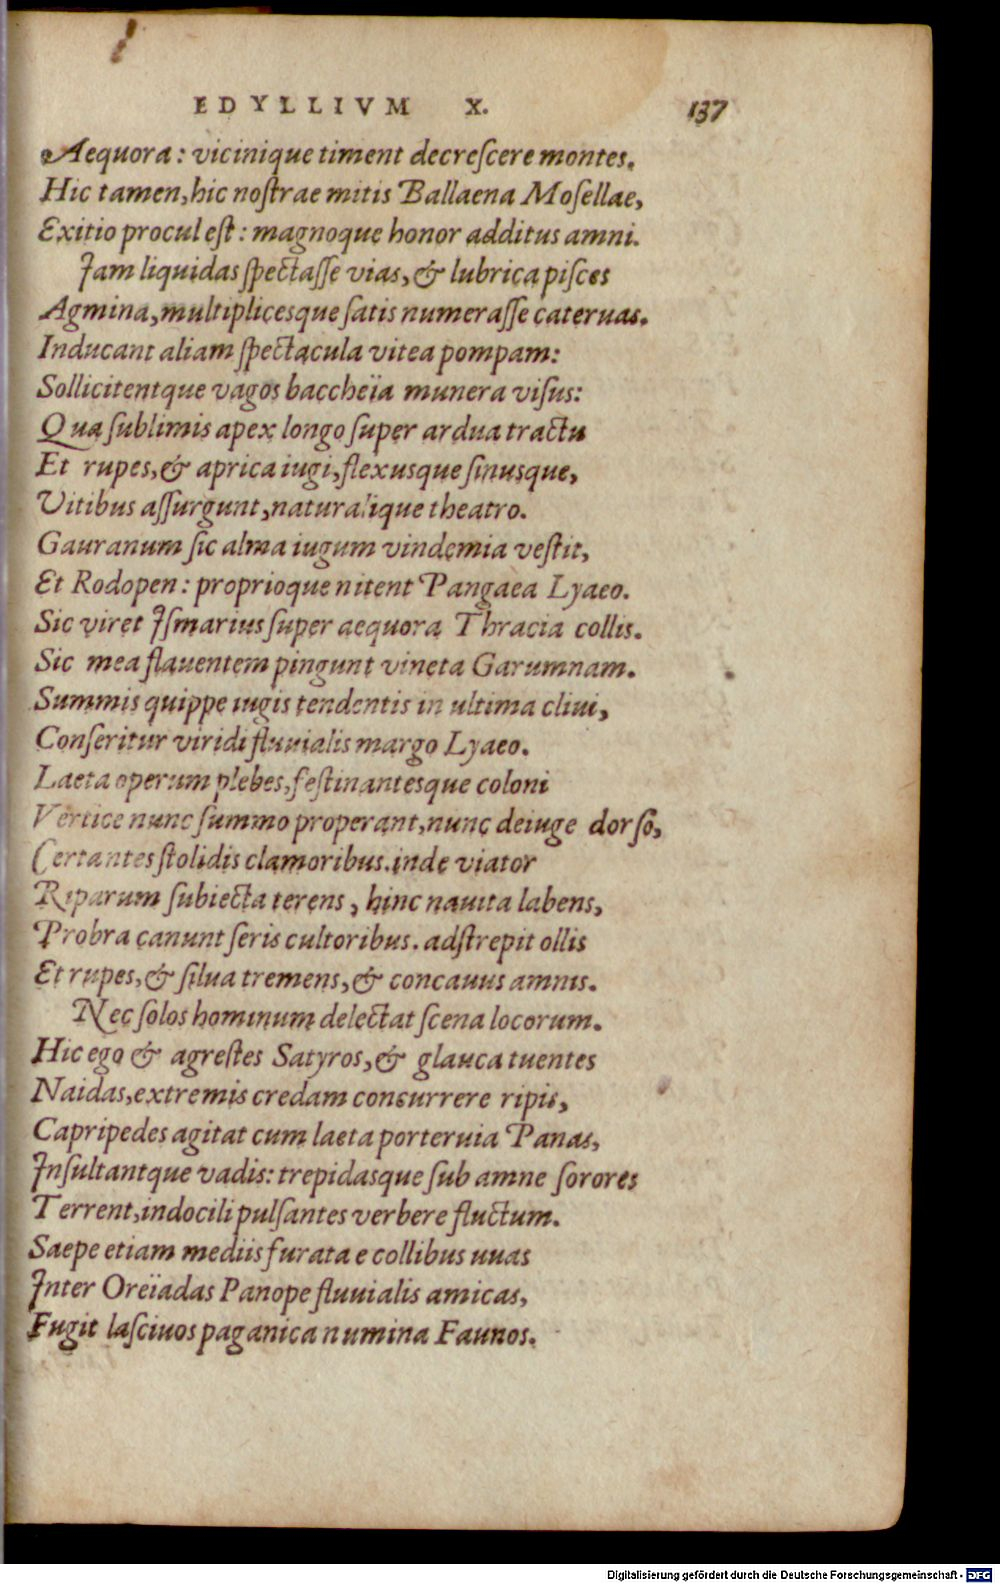 EDYLLIVM X. 137
Aequora: vicinique timent decreſcere montes.
Hic tamen, hic noſtrae mitis Ballaena Moſellae,
Exitio procul eſt: magnoque honor additus amni.
Jam liquidas ſpectaſſe vias, & lubrica piſces
Agmina, multiplicesque ſatis numeraſſe cateruas.
Inducant aliam ſpectacula vitea pompam:
Sollicitentque vagos baccheïa munera viſus:
Qua ſublimis apex longo ſuper ardua tractu
Et rupes, & aprica iugi, flexusque ſinusque,
Vitibus aſſurgunt, naturalique theatro.
Gauranum ſic alma iugum vindemia veſtit,
Et Rodopen: proprioque nitent Pangaea Lyaeo.
Sic viret Jſmarius ſuper aequora Thracia collis.
Sic mea flauentem pingunt vineta Garumnam.
Summis quippe iugis tendentis in ultima cliui,
Conſeritur viridi fluuialis margo Lyaeo.
Laeta operum plebes, feſtinantesque coloni
Vertice nunc ſummo properant, nunc deiuge dorſo,
Certantes ſtolidis clamoribus. inde viator
Riparum ſubiecta terens, hinc nauita labens,
Probra canunt ſeris cultoribus. adſtrepit ollis
Et rupes, & ſilua tremens, & concauus amnis.
Nec ſolos hominum delectat ſcena locorum.
Hic ego & agreſtes Satyros, & glauca tuentes
Naidas, extremis credam concurrere ripis,
Capripedes agitat cum laeta porteruia Panas,
Jnſultantque vadis: trepidasque ſub amne ſorores
Terrent, indocili pulſantes verbere fluctum.
Saepe etiam mediis furata e collibus uuas
Jnter Oreïadas Panope fluuialis amicas,
Fugit laſciuos paganica numina Faunos.
Digitalisierung gefördert durch die Deutsche Forschungsgemeinschaft - DFG